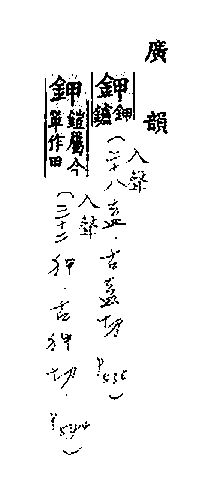 廣韻
鉀 鉀鑪 入聲 (二十八盍.古盍切 P536)
鉀 鎧屬今單作甲 入聲 (三十二狎.古狎切.P544)